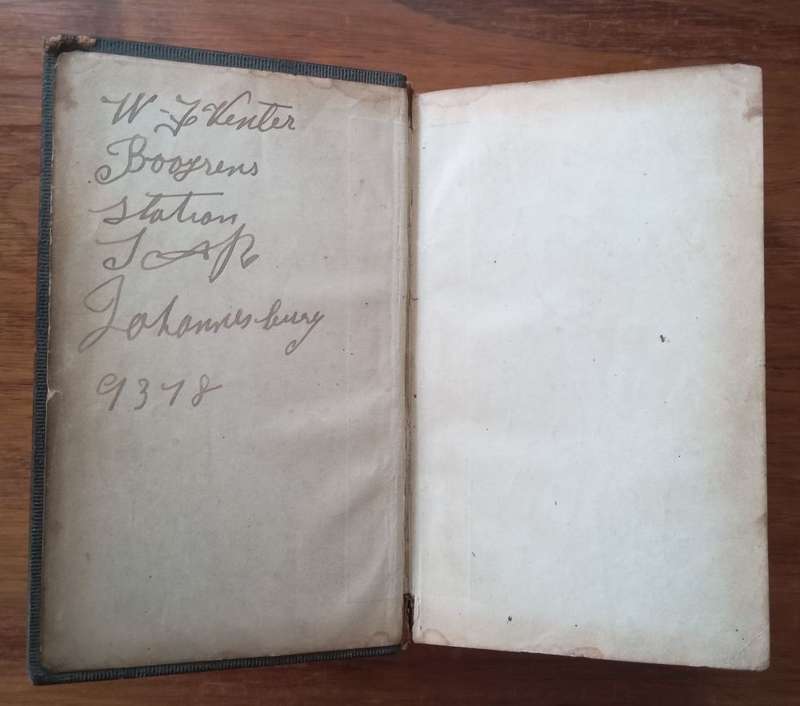 W F Venter
Booysens
Station
S A R
Johannesburg
9378